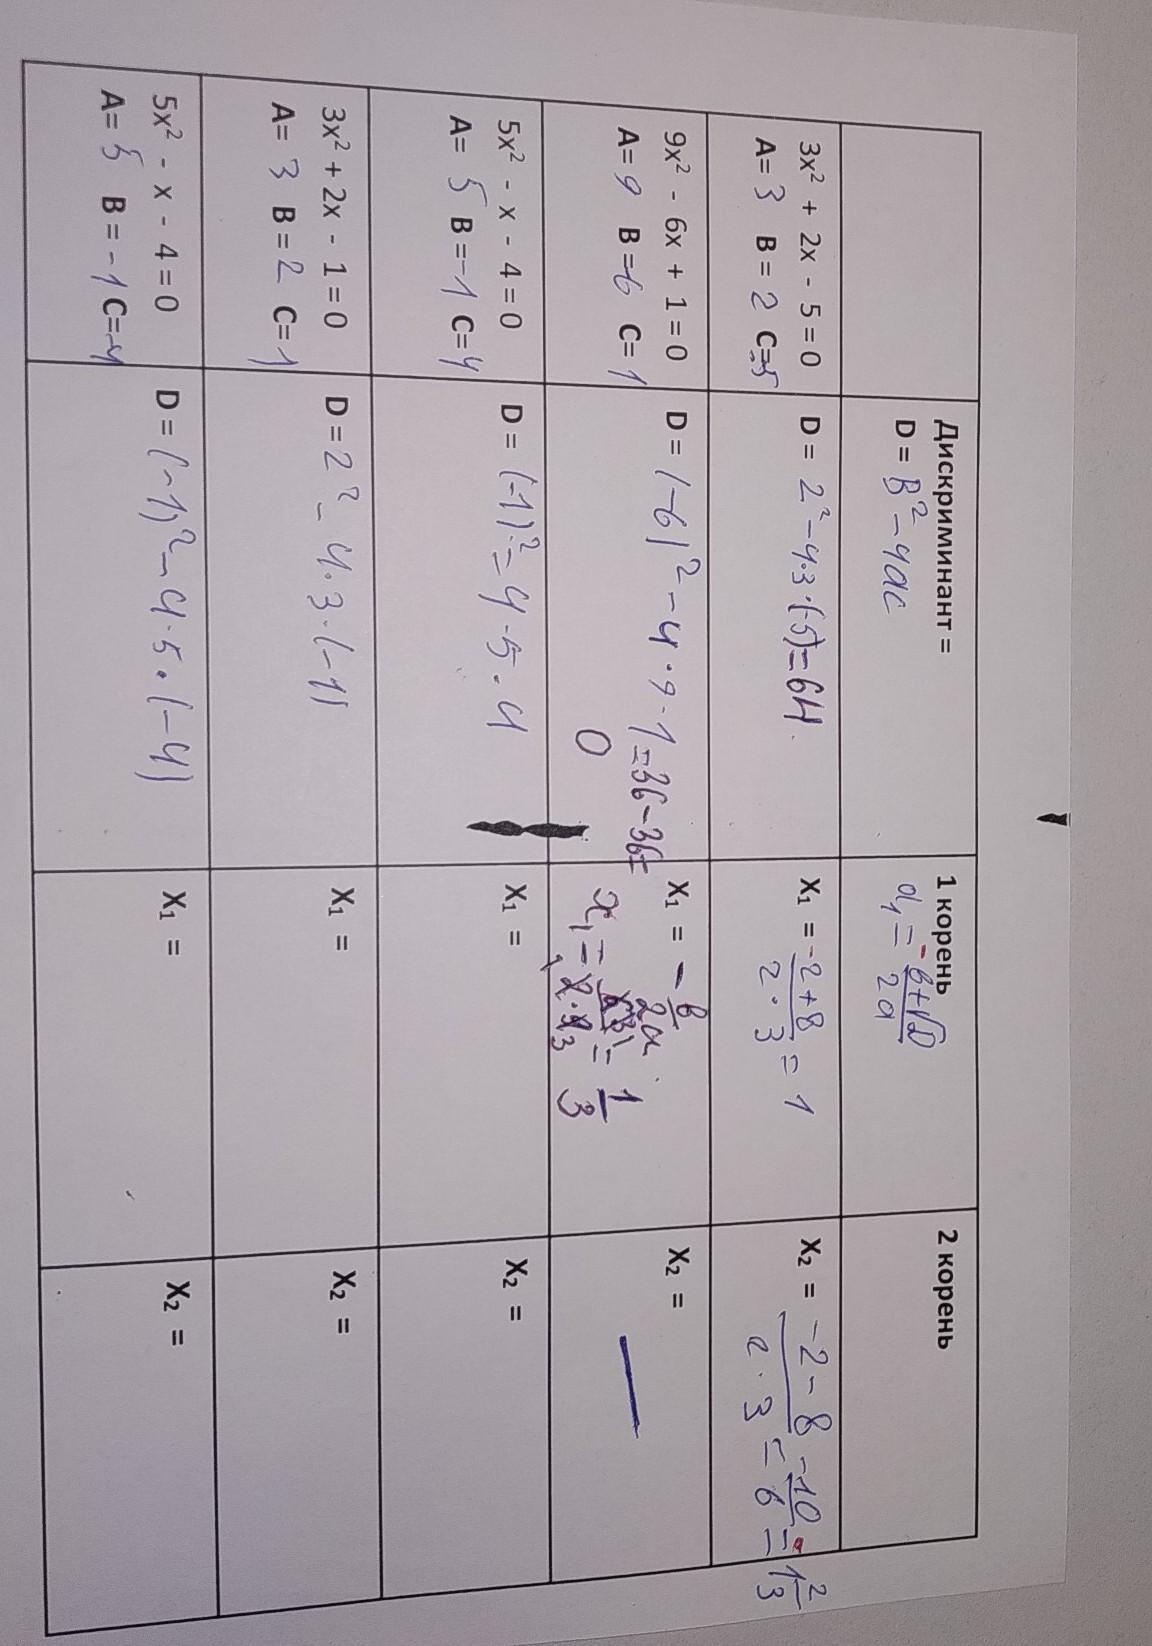 Дискриминант =
D = B² - 4ac
1 корень
x₁ = -b+√D / 2a
2 корень
3x² + 2x - 5 = 0
A= 3 B = 2 C=-5
D = 2² - 4·3·(-5) = 64
X₁ = -2+8 / 2·3 = 1
X₂ = -2-8 / 2·3 = -10 / 6 = -1 2/3
9x² - 6x + 1 = 0
A= 9 B =-6 C= 1
D = (-6)² - 4·9·1 = 36-36=
0
X₁ = - b / 2a
x₁ = = 1/3
X₂ = —
5x² - x - 4 = 0
A= 5 B =-1 C= 4
D = (-1)² - 4·5·4
X₁ =
X₂ =
3x² + 2x - 1 = 0
A= 3 B = 2 C=-1
D = 2² - 4·3·(-1)
X₁ =
X₂ =
5x² - x - 4 = 0
A= 5 B =-1 C=-4
D = (-1)² - 4·5·(-4)
X₁ =
X₂ =